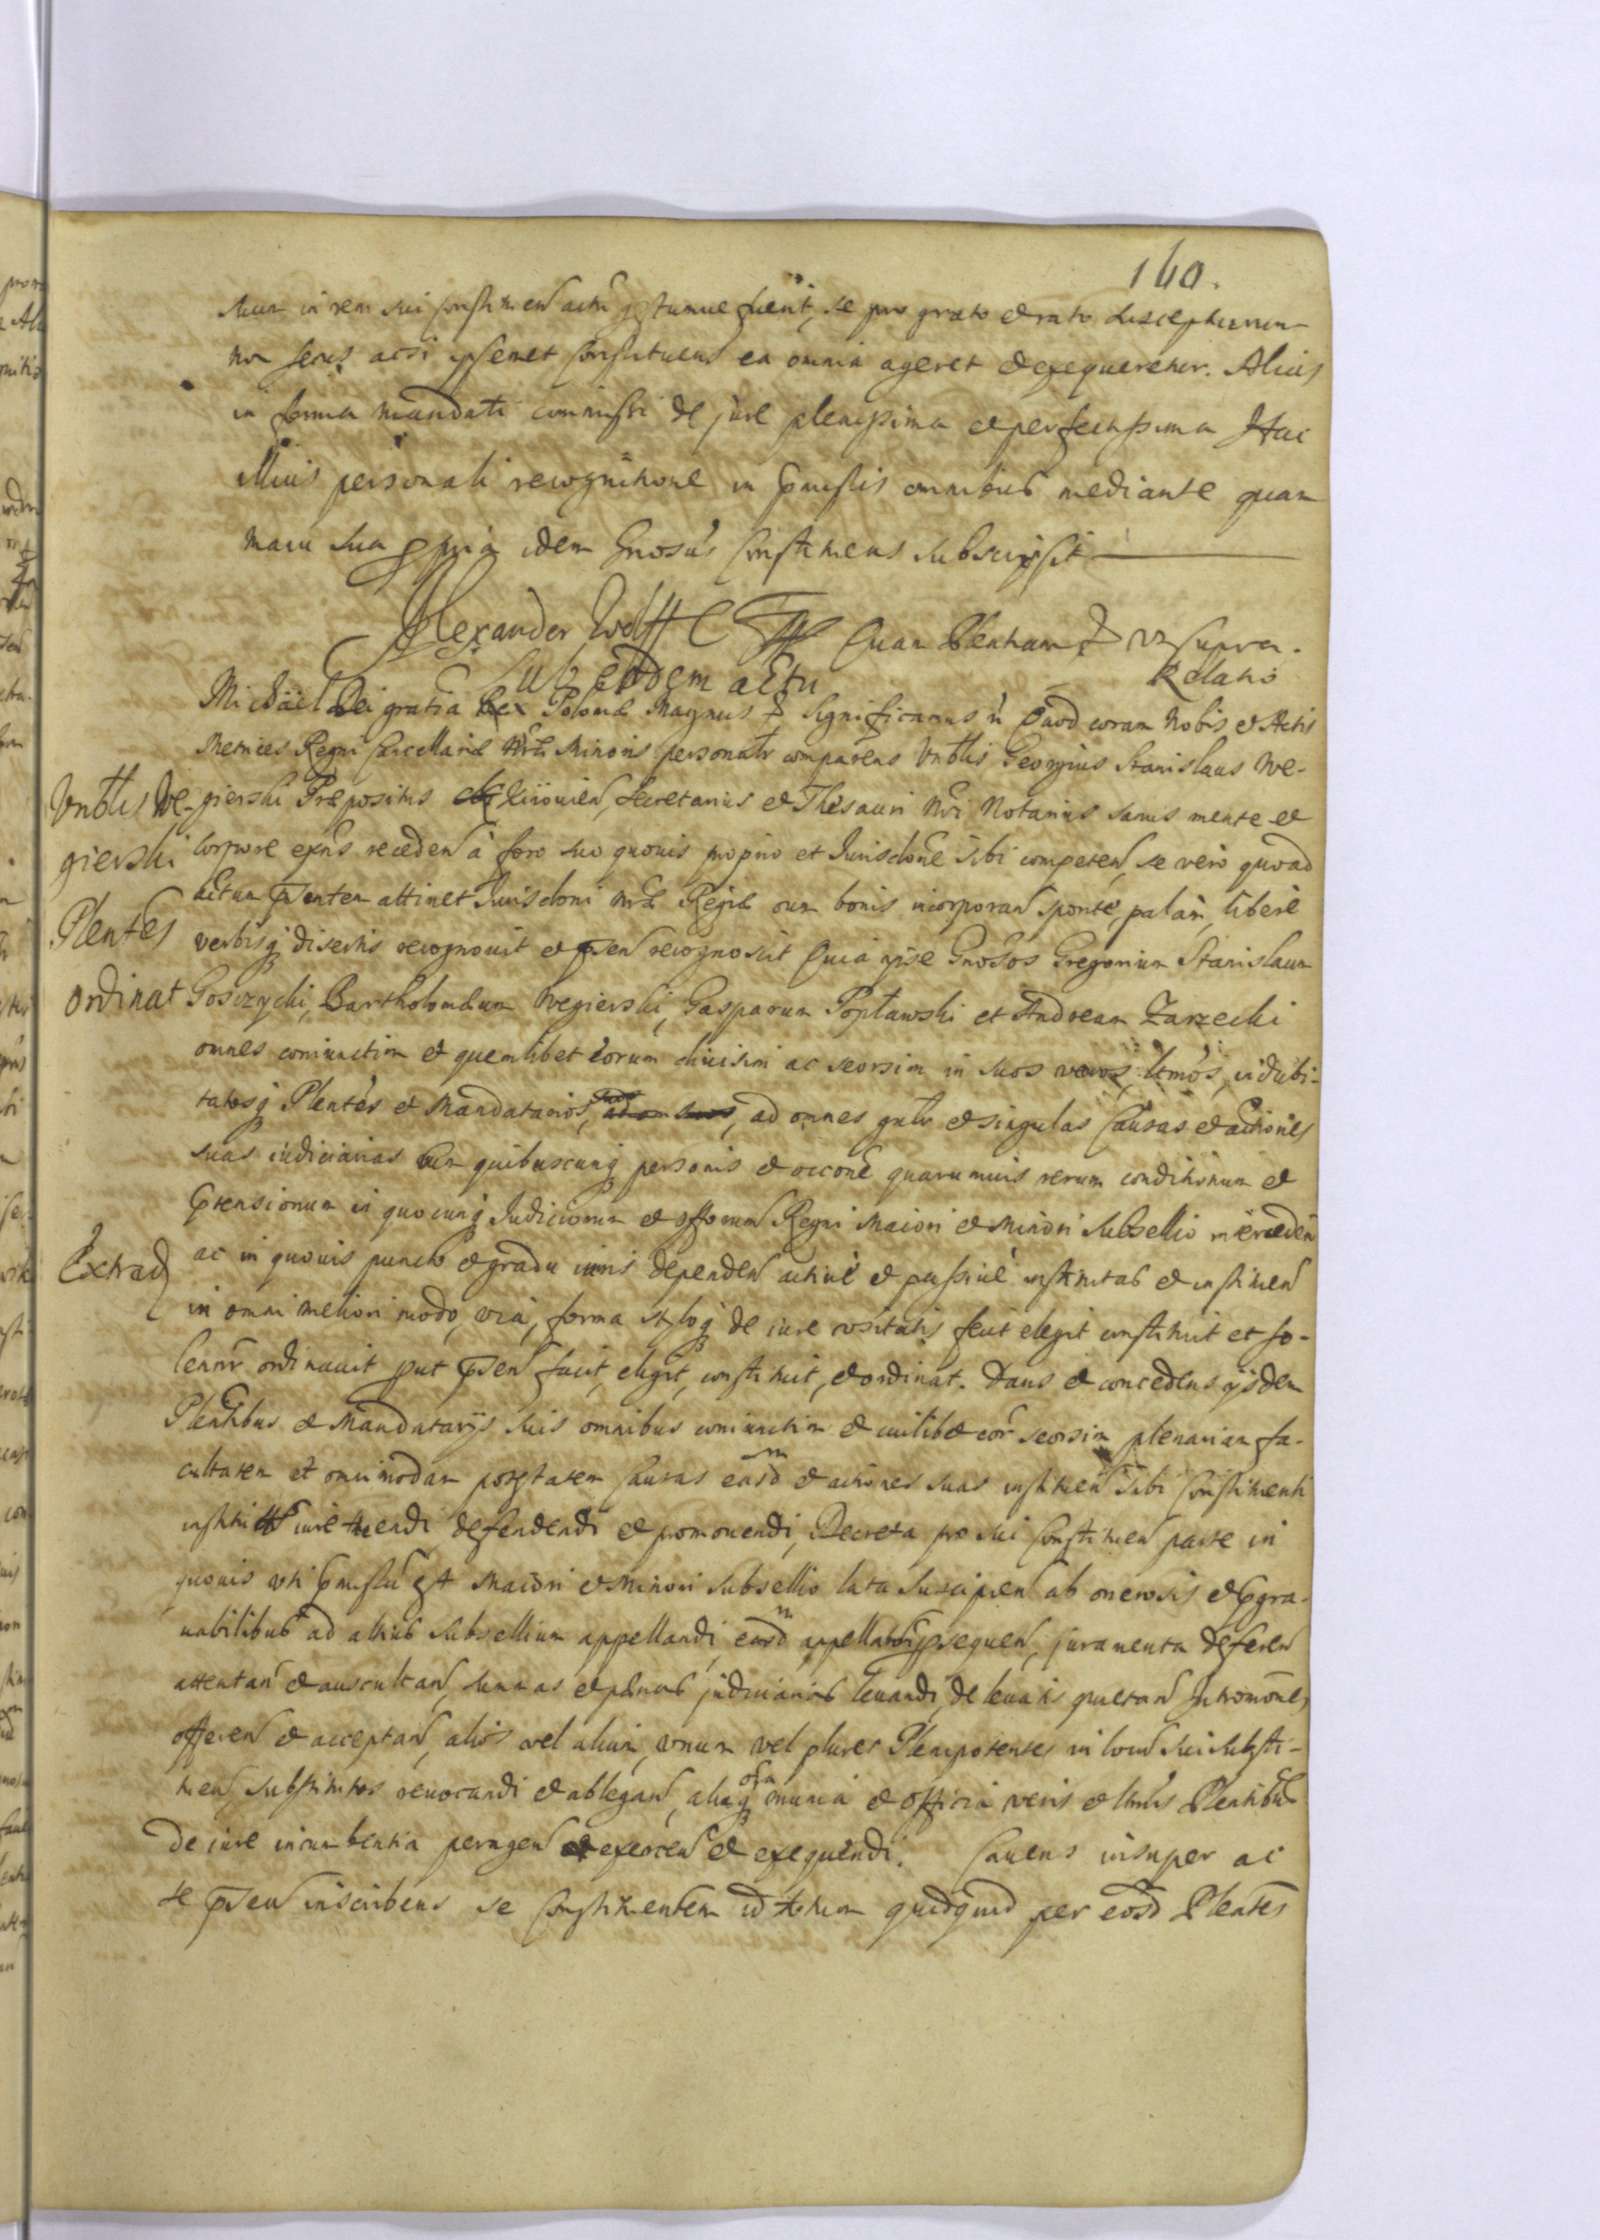 160.
suum in rem sui constituen actu gestumue fuerit, se pro grato et rato suscepturum
non secus acsi ipsemet constituens ea omnia ageret et exequeretur. Alias
in forma mandati commissi de jure plenissima et perfectissima Hac
illius personali recognitione in pmissis omnibus mediante quam
manu sua ppria idem Gnosus constituens subscripsit
Alexander Wolff Quam Plenham ut supra.
Relatio
Sub eodem actu
Michael Dei gratia Rex Poloniæ Magnus Significamus Quod coram Nobis et Actis
Metrices Regni Cancellariæ Nræ Minoris personalr comparens Vnblis Georgius Stanislaus We-
gierski Præpositus Kiiouien, Secretarius et Thesauri Nri Notarius sanus mente et
Vnblis We-
gierski
Plentes
ordinat
corpore exns receden à foro suo quouis proprio et Jurisdone sibi competen, se vero quoad
actum pntem attinet Jurisdoni Nræ Regiæ cum bonis incorporan sponte, palam, libere
verbisq disertis recognouit et psen recognoscit Quia ipse Gnosos Gregorium Stanislaum
Goszycki, Bartholomæum Wegierski, Gasparum Popławski et Andream Zarzecki
omnes coniunctim et quemlibet eorum diuisim ac seorsim in suos veros, ltmos, indubi-
tatosq Plentes et Mandatarios, ad omnes gnlr et singulas Causas et actiones
suas iudiciarias cum quibuscunq personis et occone quarumuis rerum conditionum et
ptensionum in quocunq Judiciorum et offorum Regni Maiori et Minori Subsellio interceden
Extrad
ac in quouis puncto et gradu iuris dependen actiue et passiue institutas et instituen
in omni meliori modo, via, forma styloq de iure vsitatis fecit elegit constituit et so-
lennr ordinauit put psen facit, eligit, constituit, et ordinat. Dans et concedens ijsdem
Plentibus et Mandatarijs suis omnibus coniunctim et cuilibet eor seorsim plenariam fa-
cultatem et omnimodam potestatem Causas easdm et actiones suas instituen sibi Constituenti
iure tuendi defendendi et promouendi, Decreta pro sui Constituen parte in
quouis vti pmissu est Maiori et Minori Subsellio lata suscipien ab onerosis et pgra-
uabilibus ad altius Subsellium appellandi, easdm prosequen, juramenta deferen
attentan et auscultan, summas et pænas judiciarias leuandi, de leuatis quietan Intromones
offeren et acceptan, alios vel alium, vnum vel plures Plenipotentes in locum sui substi-
tuen substitutos reuocandi et ablegan, aliaq oia munia et officia veris et ltmis Plentibus
de iure incumbentia peragen exercen et exequendi. Cauens insuper ac
se psen inscribens se Constituentem id totum quidquid per eosd Plentes